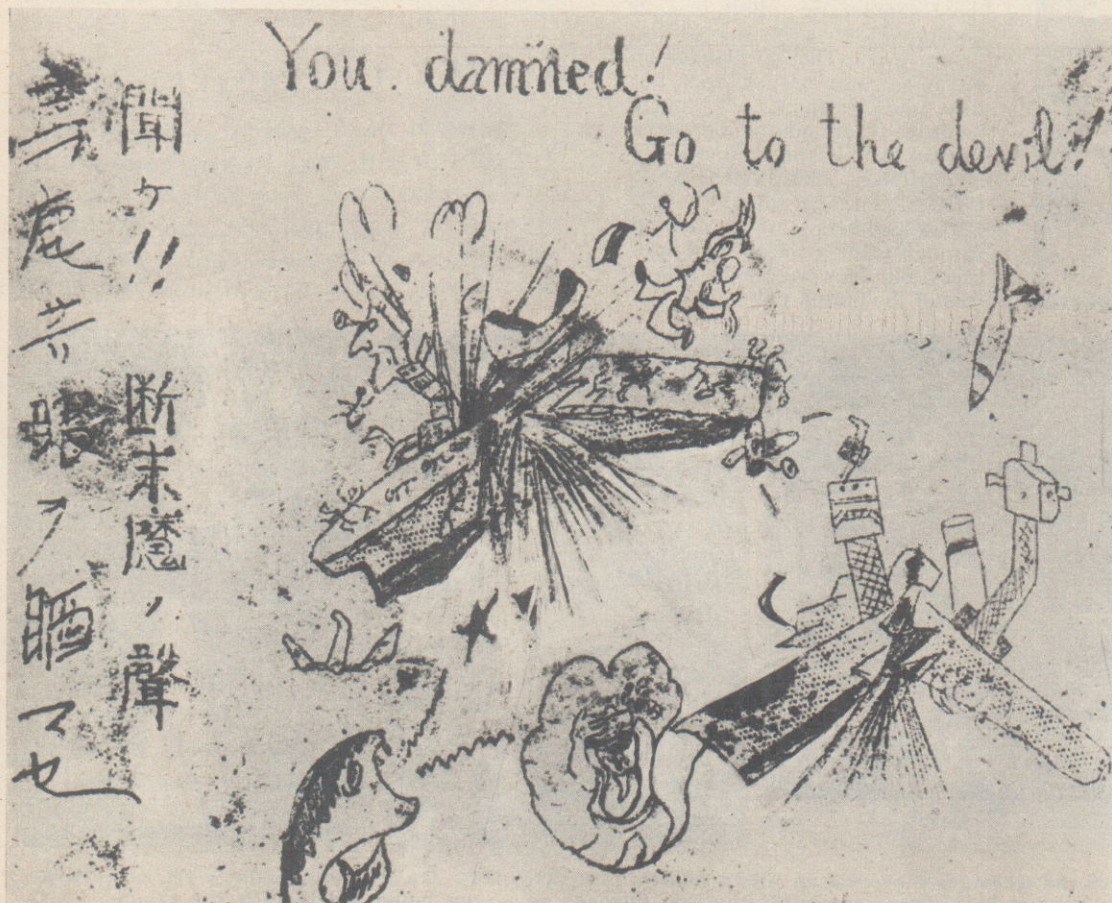 You damned!
Go to the devil!
聞ケ!! 断末魔ノ聲
眼ヲ醒マセ